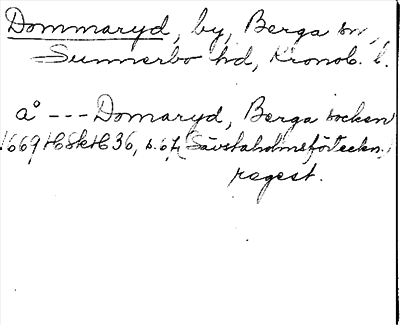 Dommaryd, by, Berga sn,
Sunnerbo hd, Kronob. l.
å --- Domaryd, Berga socken
1669 HSkH 36, s. 67 (Sävstaholmsförteckn.)
regest.